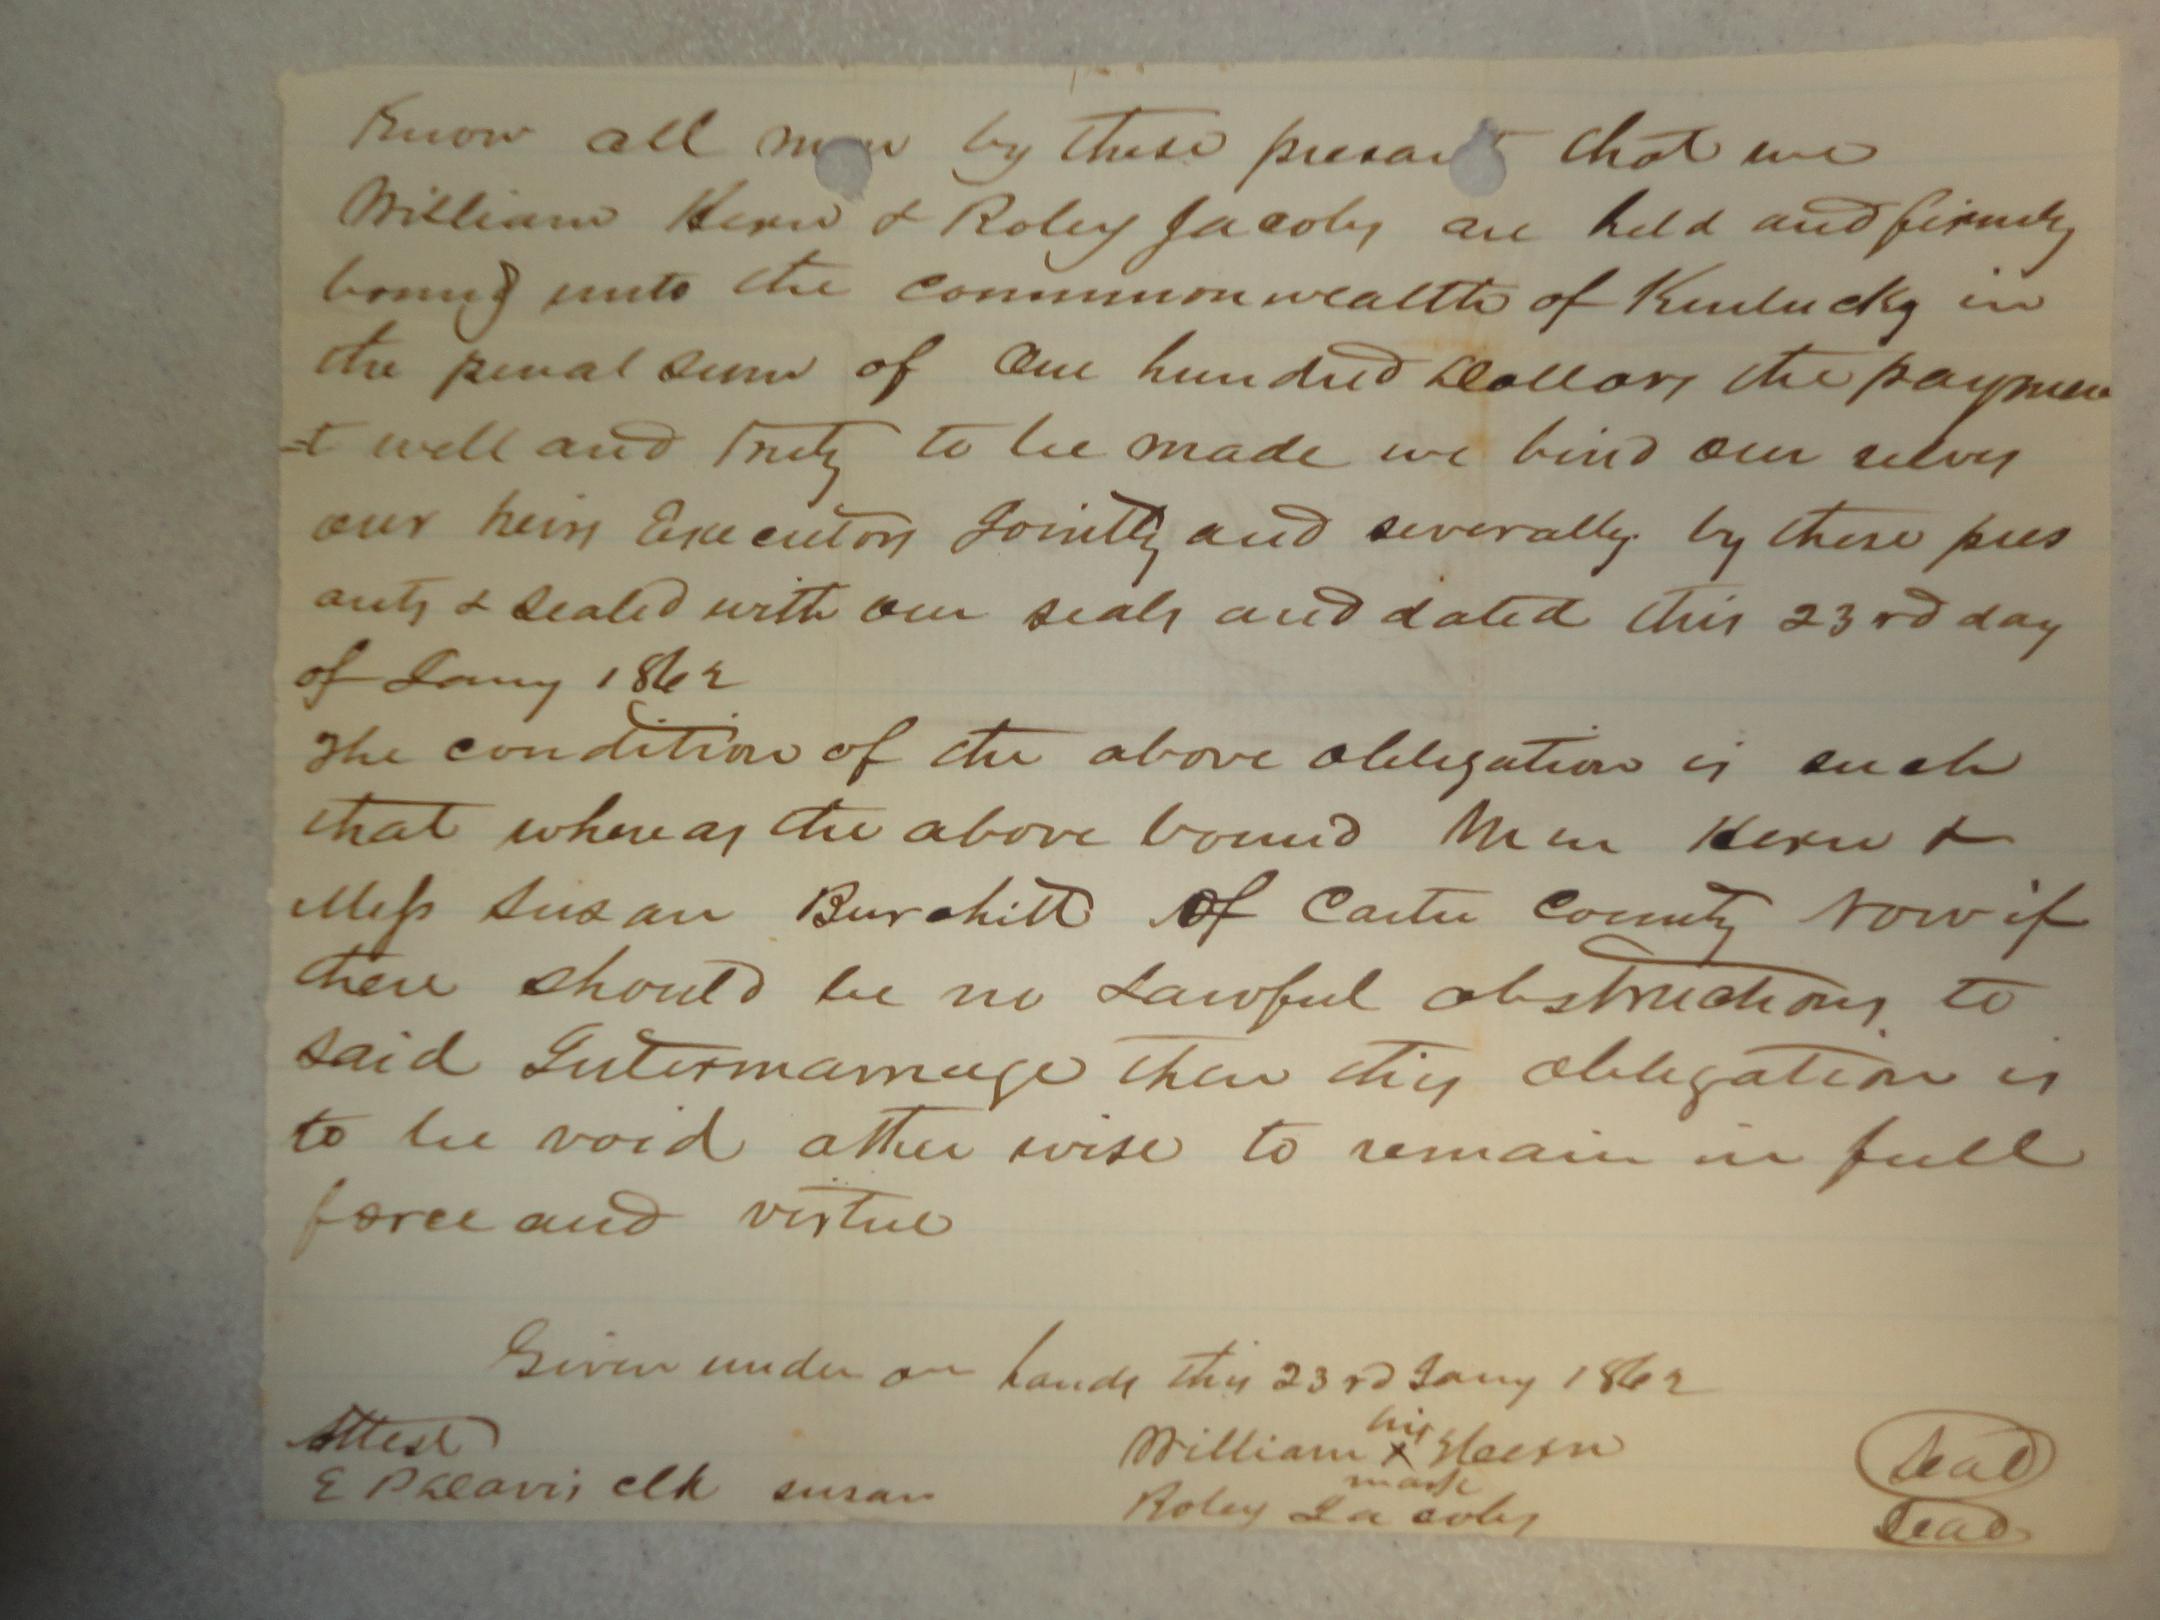 Know all men by these presant that we
William Kern & Roley Jacoby are held and firmly
bound unto the commonwealth of Kentucky in
the penal sum of One hundred Dollars the paymen
-t well and truly to be made we bind our selves
our heirs Executors Jointly and severally by these pres
ants & sealed with our seals and dated this 23rd day
of Jany 1862
The condition of the above obligation is such
that whereas the above bound Wm Kern &
Miss Susan Burchitt Of Carter County Now if
there should be no Lawful obstructions to
said Intermarriage then this obligation is
to be void other wise to remain in full
force and virtue
Given under our hands this 23rd Jany 1862
Attest
William his x mark Kern seal
E P Davis clk susan
Roley Jacoby seal